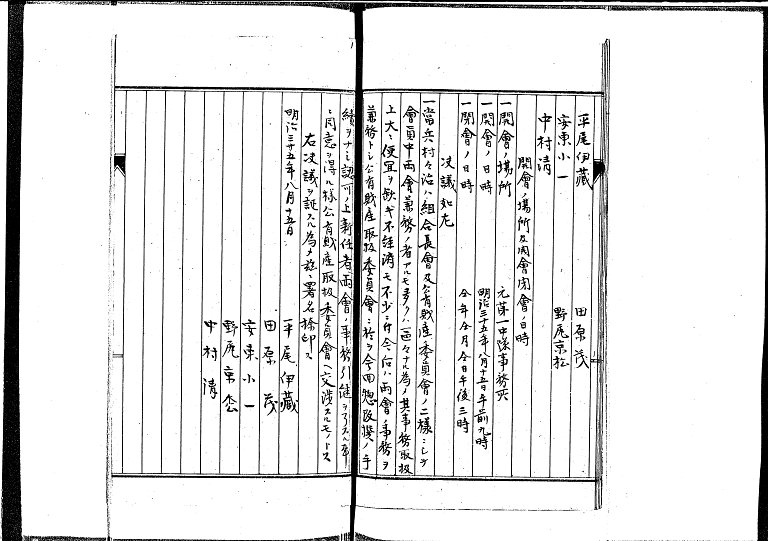 平尾伊藏 田原茂
安東小一 野尻京松
中村清
開會ノ場所及開會閉會ノ日時
一開會ノ場所 元第一中隊事務所
一開會ノ日時 明治三十五年八月十五日午前九時
一閉會ノ日時 仝年仝月仝日午後三時
決議如左
一當兵村々治ハ組合長會及公有財産委員會ノ二様ニシテ
會員中両會兼務ノ者アルモ多クハ區々ナル為メ其事務取扱
上大ニ便宜ヲ欠ギ不経済モ不少ニ付今后ハ両會ノ事務ヲ
兼務トシ公有財産取扱委員會ニ於テ今回惣改撰ノ手
續ヲナシ認可ノ上新任者両會ノ事務引継ヲ了スル
ノ同意ヲ得ル様公有財産取扱委員會ヘ交渉スルモノトス
右決議ヲ證スル為メ茲ニ署名捺印ス
明治三十五年八月十五日
平尾伊藏
田原茂
安東小一
野尻京松
中村清